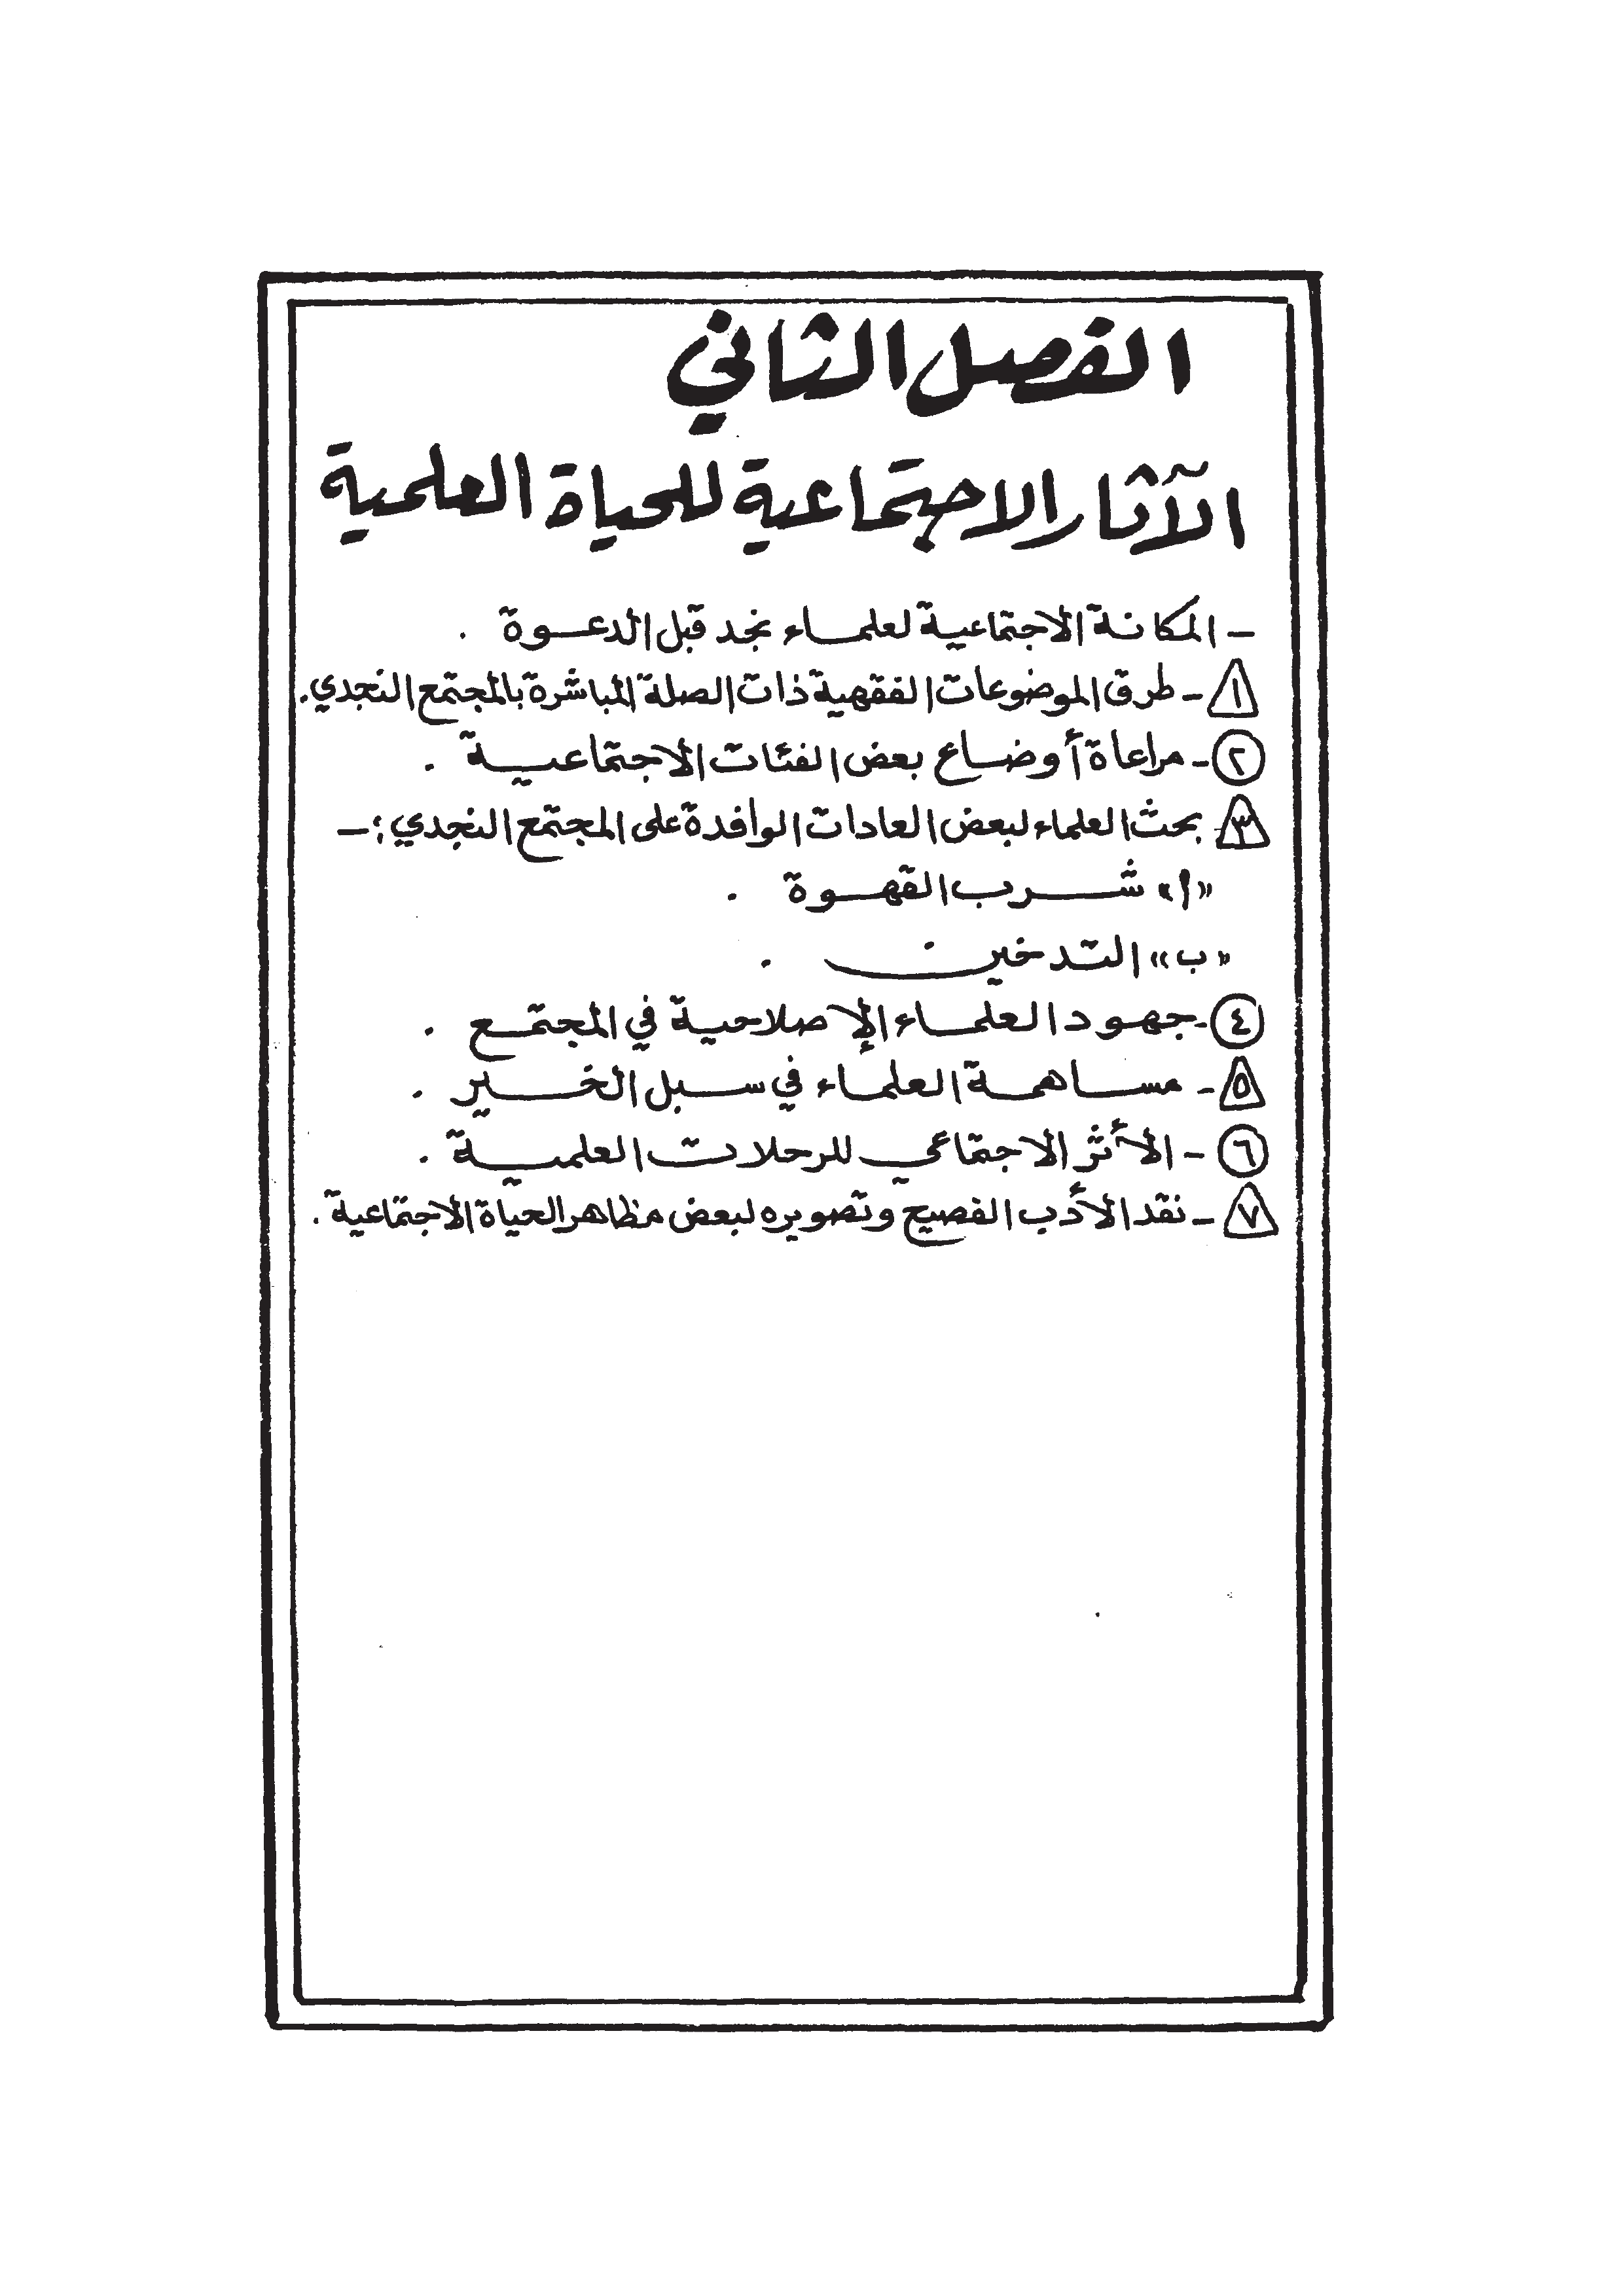 الفصل الثاني
الآثار الاجتماعية للحياة العلمية
- المكانة الاجتماعية لعلماء نجد قبل الدعوة .
١- طرق الموضوعات الفقهية ذات الصلة المباشرة بالمجتمع النجدي.
٢- مراعاة أوضاع بعض الفئات الاجتماعية .
٣ بحث العلماء لبعض العادات الوافدة على المجتمع النجدي ؛ -
«أ» شرب القهوة .
«ب» التدخين .
٤- جهود العلماء الإصلاحية في المجتمع .
٥- مساهمة العلماء في سبل الخير .
٦- الأثر الاجتماعي للرحلات العلمية .
٧- نقد الأدب الفصيح وتصويره لبعض مظاهر الحياة الاجتماعية .